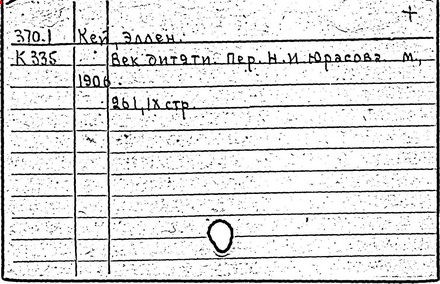 +
370.1 Кей, Эллен.
К 335 Век дитяти. Пер. Н.И Юрасова. М.,
1906.
261, IX стр.